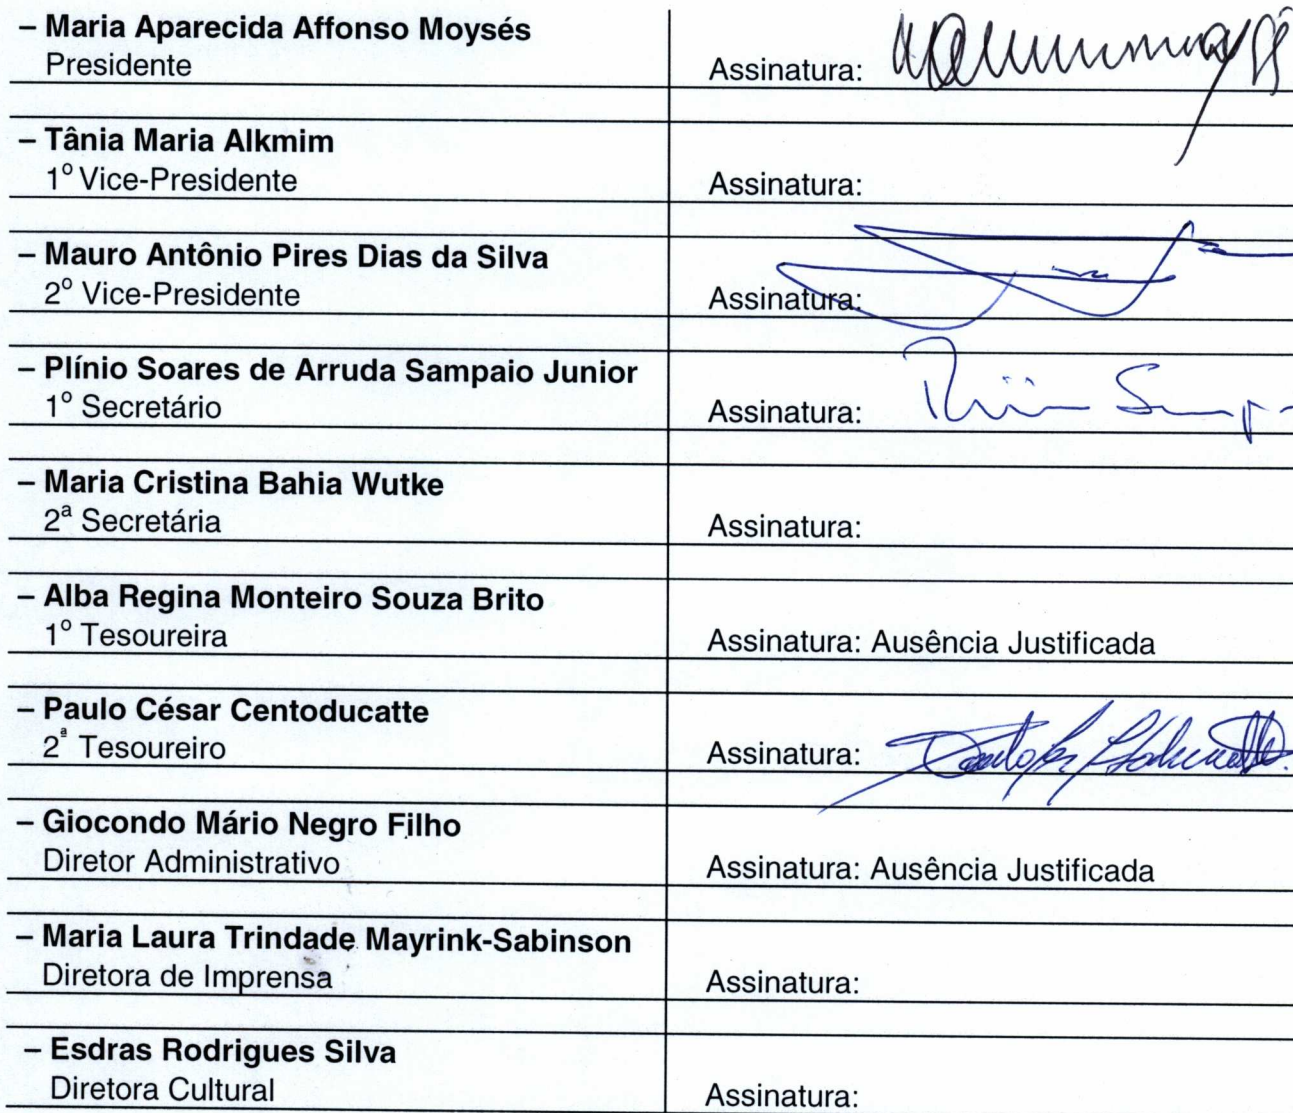 – Maria Aparecida Affonso Moysés
Presidente
Assinatura:
– Tânia Maria Alkmim
1º Vice-Presidente
Assinatura:
– Mauro Antônio Pires Dias da Silva
2º Vice-Presidente
Assinatura:
– Plínio Soares de Arruda Sampaio Junior
1º Secretário
Assinatura:
– Maria Cristina Bahia Wutke
2ª Secretária
Assinatura:
– Alba Regina Monteiro Souza Brito
1º Tesoureira
Assinatura: Ausência Justificada
– Paulo César Centoducatte
2ª Tesoureiro
Assinatura:
– Giocondo Mário Negro Filho
Diretor Administrativo
Assinatura: Ausência Justificada
– Maria Laura Trindade Mayrink-Sabinson
Diretora de Imprensa
Assinatura:
– Esdras Rodrigues Silva
Diretora Cultural
Assinatura: